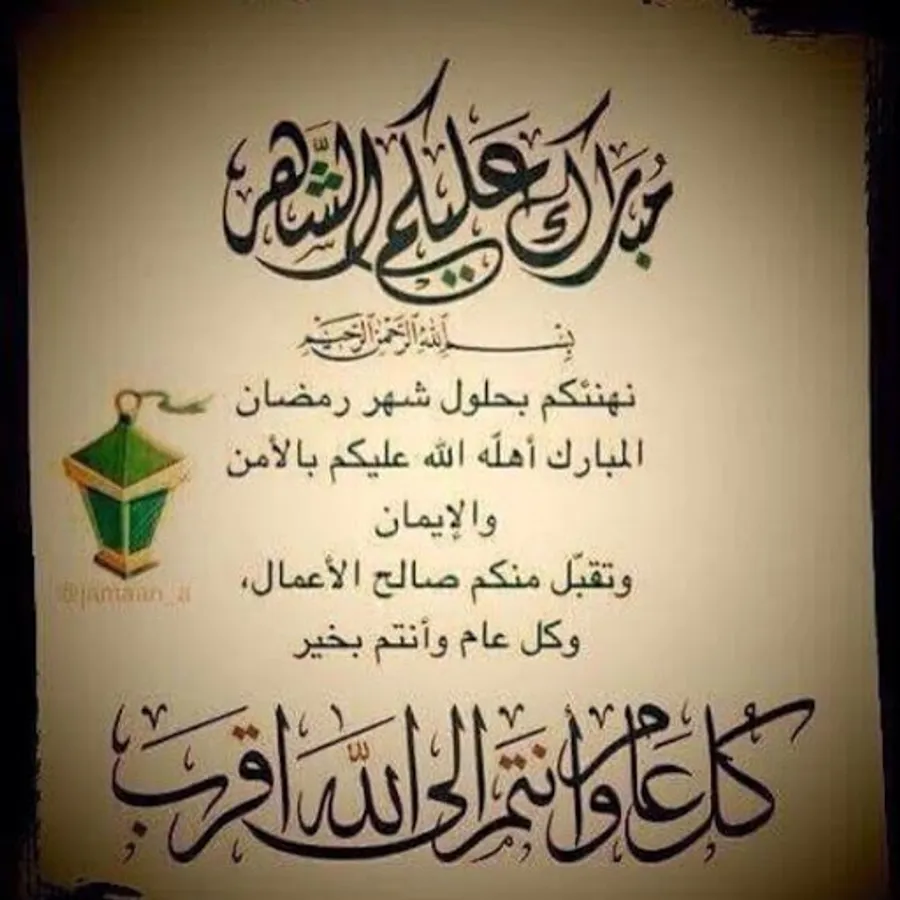 مبارك عليكم الشهر
بسم الله الرحمن الرحيم
نهنئكم بحلول شهر رمضان
المبارك أهلّه الله عليكم بالأمن
والإيمان
وتقبّل منكم صالح الأعمال،
وكل عام وأنتم بخير
@jamaan_a
كل عام وأنتم إلى الله اقرب